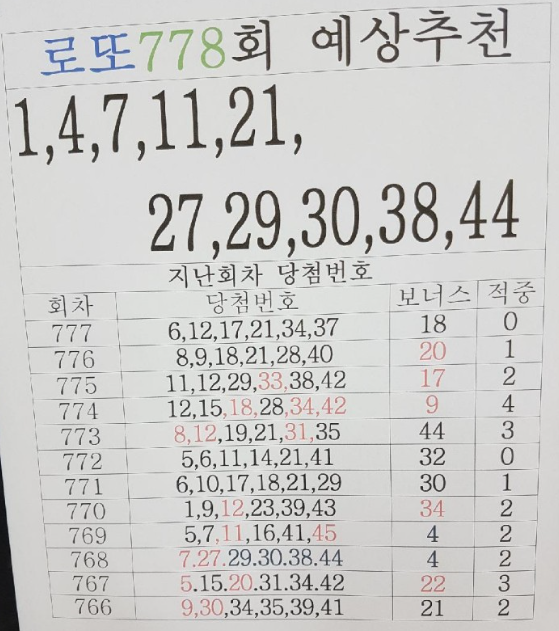 로또778회 예상추천
1,4,7,11,21,
27,29,30,38,44
지난회차 당첨번호
회차 당첨번호 보너스 적중
777 6,12,17,21,34,37 18 0
776 8,9,18,21,28,40 20 1
775 11,12,29,33,38,42 17 2
774 12,15,18,28,34,42 9 4
773 8,12,19,21,31,35 44 3
772 5,6,11,14,21,41 32 0
771 6,10,17,18,21,29 30 1
770 1,9,12,23,39,43 34 2
769 5,7,11,16,41,45 4 2
768 7.27.29.30.38.44 4 2
767 5.15.20.31.34.42 22 3
766 9,30,34,35,39,41 21 2